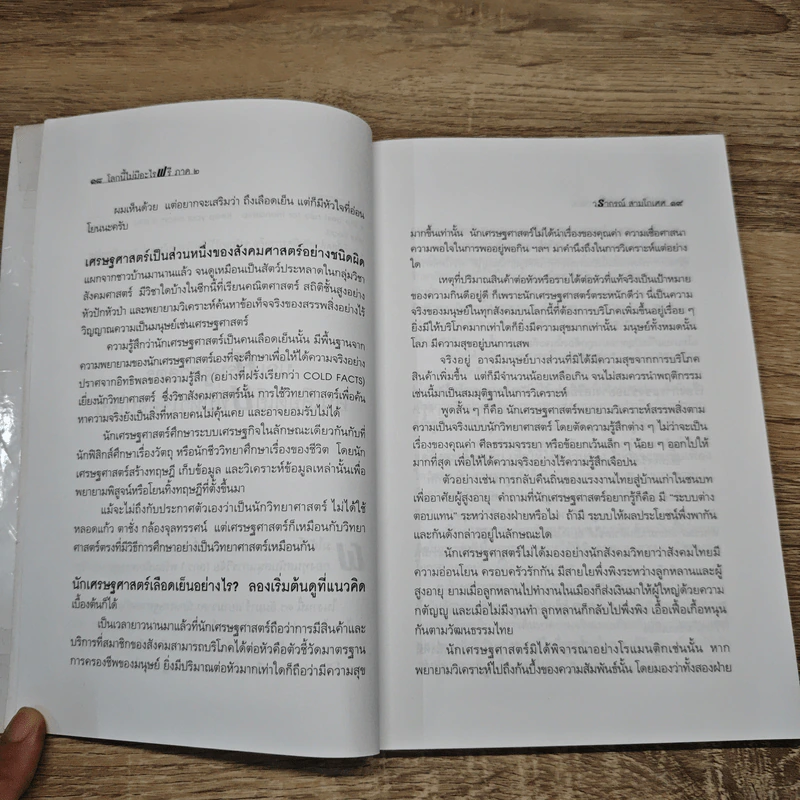 ๑๘ โลกนี้ไม่มีอะไรฟรี ภาค ๒
ผมเห็นด้วย แต่อยากจะเสริมว่า ถึงเลือดเย็น แต่ก็มีหัวใจที่อ่อน
โยนนะครับ
เศรษฐศาสตร์เป็นส่วนหนึ่งของสังคมศาสตร์อย่างชนิดผิด
แผกจากชาวบ้านมานานแล้ว จนดูเหมือนเป็นสัตว์ประหลาดในกลุ่มวิชา
สังคมศาสตร์ มีวิชาใดบ้างในซีกนี้ที่เรียนคณิตศาสตร์ สถิติชั้นสูงอย่าง
หัวปักหัวปำ และพยายามวิเคราะห์ค้นหาข้อเท็จจริงของสรรพสิ่งอย่างไร้
วิญญาณความเป็นมนุษย์เช่นเศรษฐศาสตร์
ความรู้สึกว่านักเศรษฐศาสตร์เป็นคนเลือดเย็นนั้น มีพื้นฐานจาก
ความพยายามของนักเศรษฐศาสตร์เองที่จะศึกษาเพื่อให้ได้ความจริงอย่าง
ปราศจากอิทธิพลของความรู้สึก (อย่างที่ฝรั่งเรียกว่า COLD FACTS)
เยี่ยงนักวิทยาศาสตร์ ซึ่งวิชาสังคมศาสตร์นั้น การใช้วิทยาศาสตร์เพื่อค้น
หาความจริงยังเป็นสิ่งที่หลายคนไม่คุ้นเคย และอาจยอมรับไม่ได้
นักเศรษฐศาสตร์ศึกษาระบบเศรษฐกิจในลักษณะเดียวกันกับที่
นักฟิสิกส์ศึกษาเรื่องวัตถุ หรือนักชีววิทยาศึกษาเรื่องของชีวิต โดยนัก
เศรษฐศาสตร์สร้างทฤษฎี เก็บข้อมูล และวิเคราะห์ข้อมูลเหล่านั้นเพื่อ
พยายามพิสูจน์หรือโยนทิ้งทฤษฎีที่ตั้งขึ้นมา
แม้จะไม่ถึงกับประกาศตัวเองว่าเป็นนักวิทยาศาสตร์ ไม่ได้ใช้
หลอดแก้ว ตาชั่ง กล้องจุลทรรศน์ แต่เศรษฐศาสตร์ก็เหมือนกับวิทยา
ศาสตร์ตรงที่มีวิธีการศึกษาอย่างเป็นวิทยาศาสตร์เหมือนกัน
นักเศรษฐศาสตร์เลือดเย็นอย่างไร? ลองเริ่มต้นดูที่แนวคิด
เบื้องต้นก็ได้
เป็นเวลายาวนานมาแล้วที่นักเศรษฐศาสตร์ถือว่าการมีสินค้าและ
บริการที่สมาชิกของสังคมสามารถบริโภคได้ต่อหัวคือตัวชี้วัดมาตรฐาน
การครองชีพของมนุษย์ ยิ่งมีปริมาณต่อหัวมากเท่าใดก็ถือว่ามีความสุข
วรากรณ์ สามโกเศศ ๑๙
มากขึ้นเท่านั้น นักเศรษฐศาสตร์ไม่ได้นำเรื่องของคุณค่า ความเชื่อศาสนา
ความพอใจในการพออยู่พอกิน ฯลฯ มาคำนึงถึงในการวิเคราะห์แต่อย่าง
ใด
เหตุที่ปริมาณสินค้าต่อหัวหรือรายได้ต่อหัวที่แท้จริงเป็นเป้าหมาย
ของความกินดีอยู่ดี ก็เพราะนักเศรษฐศาสตร์ตระหนักดีว่า นี่เป็นความ
จริงของมนุษย์ในทุกสังคมบนโลกนี้ที่ต้องการบริโภคเพิ่มขึ้นอยู่เรื่อย ๆ
ยิ่งมีให้บริโภคมากเท่าใดก็ยิ่งมีความสุขมากเท่านั้น มนุษย์ทั้งหมดนั้น
โลภ มีความสุขอยู่บนการเสพ
จริงอยู่ อาจมีมนุษย์บางส่วนที่มิได้มีความสุขจากการบริโภค
สินค้าเพิ่มขึ้น แต่ก็มีจำนวนน้อยเหลือเกิน จนไม่สมควรนำพฤติกรรม
เช่นนี้มาเป็นสมมุติฐานในการวิเคราะห์
พูดสั้น ๆ ก็คือ นักเศรษฐศาสตร์พยายามวิเคราะห์สรรพสิ่งตาม
ความเป็นจริงแบบนักวิทยาศาสตร์ โดยตัดความรู้สึกต่าง ๆ ไม่ว่าจะเป็น
เรื่องของคุณค่า ศีลธรรมจรรยา หรือข้อยกเว้นเล็ก ๆ น้อย ๆ ออกไปให้
มากที่สุด เพื่อให้ได้ความจริงอย่างไร้ความรู้สึกเจือปน
ตัวอย่างเช่น การกลับคืนถิ่นของแรงงานไทยสู่บ้านเก่าในชนบท
เพื่ออาศัยผู้สูงอายุ คำถามที่นักเศรษฐศาสตร์อยากรู้ก็คือ มี "ระบบต่าง
ตอบแทน" ระหว่างสองฝ่ายหรือไม่ ถ้ามี ระบบให้ผลประโยชน์พึ่งพากัน
และกันดังกล่าวอยู่ในลักษณะใด
นักเศรษฐศาสตร์ไม่ได้มองอย่างนักสังคมวิทยาว่าสังคมไทยมี
ความอ่อนโยน ครอบครัวรักกัน มีสายใยพึ่งพิงระหว่างลูกหลานและผู้
สูงอายุ ยามเมื่อลูกหลานไปทำงานในเมืองก็ส่งเงินมาให้ผู้ใหญ่ด้วยความ
กตัญญู และเมื่อไม่มีงานทำ ลูกหลานก็กลับไปพึ่งพิง เอื้อเฟื้อเกื้อหนุน
กันตามวัฒนธรรมไทย
นักเศรษฐศาสตร์มิได้พิจารณาอย่างโรแมนติกเช่นนั้น หาก
พยายามวิเคราะห์ไปถึงก้นบึ้งของความสัมพันธ์นั้น โดยมองว่าทั้งสองฝ่าย